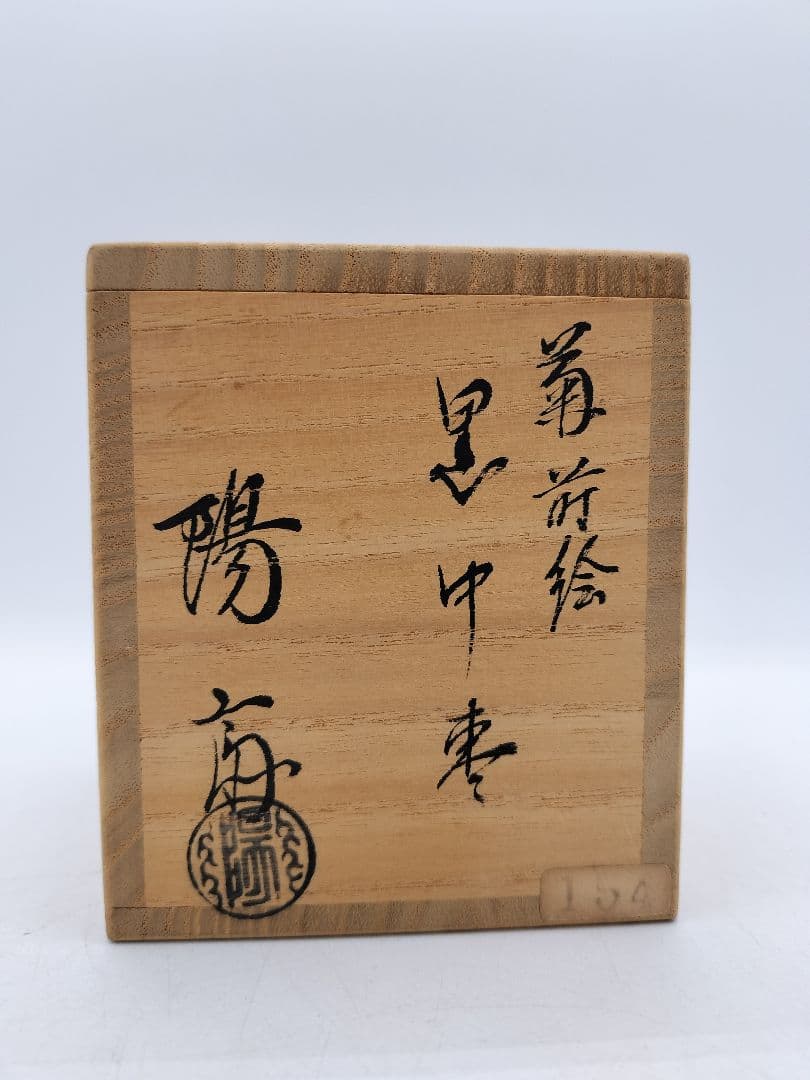 菊蒔絵
黒中棗
陽斎
154